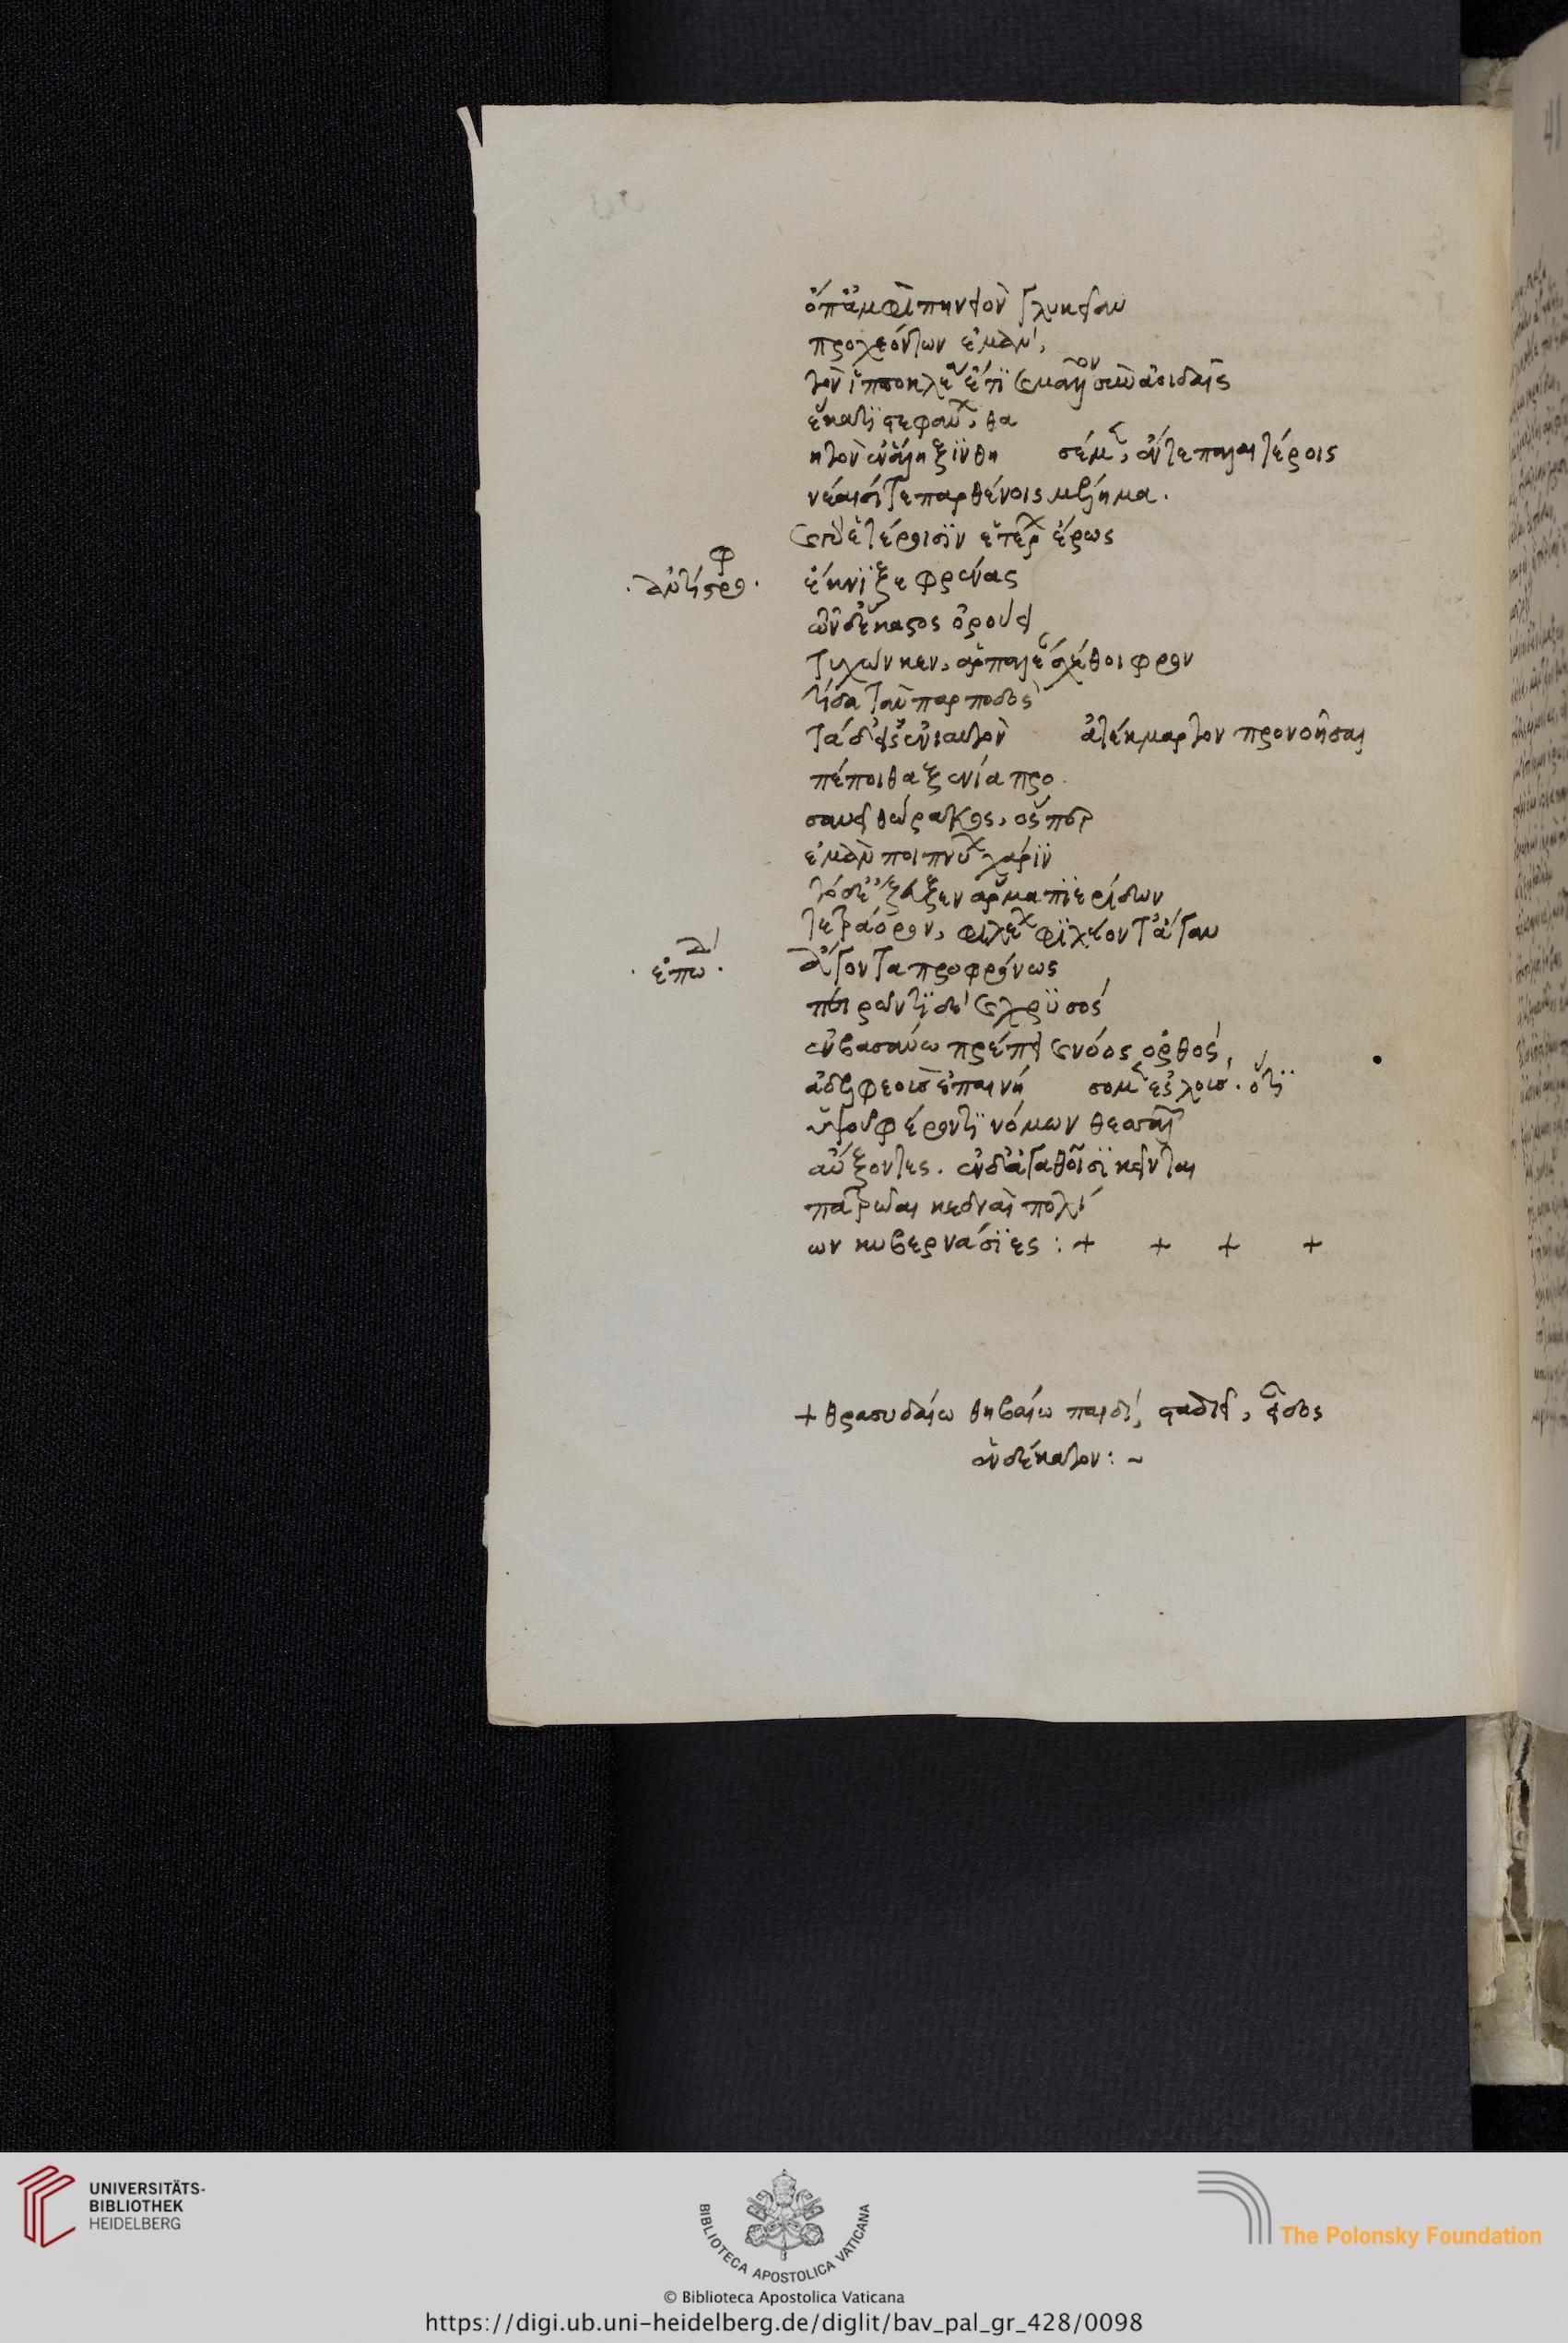 ὄπ' ἀμφὶ πηνειὸν γλυκεῖαν
προχεόντων ἐμὰν,
τὸν ἱπποκλέαν ἔτι καὶ μᾶλλον σὺν ἀοιδαῖς
ἕκατι στεφάνων, θα
ητὸν ἐν ἅλιξιν θη σέμεν, ἔντε παλαιτέροις
νέαισίτε παρθένοις μέλημα.
καὶ γὰρ ἑτέροισιν ἑτέρων ἔρως
ἀντιστροφ. ἔκνιξε φρένας
ὧν δ' ἕκαστος ὀρούει
τυχών κεν, ἁρπαλέαν σχέθοι φρον
τίδα τὰν παρ ποδός
τὰ δ' εἰς ἐνιαυτὸν ἀτέκμαρτον προνοῆσαι
πέποιθα ξενία προ
σανεῖ θώρακος, ὅσπερ
ἐμὰν ποιπνύων χάριν
τόδ' ἔζευξεν ἅρμα πιερίδων
τετράορον, φιλέων φιλέοντ' ἄγων
ἐπωδ. ἄγοντα προφρόνως
πειρῶντι δὲ καὶ χρυσὸς
ἐν βασάνω πρέπει καὶ νόος ὀρθός,
ἀδελφεοῖσ ἐπαινή σομεν ἐσλοῖσ. ὅτι
ὑψοῦ φέροντι νόμων θεσσαλῶν
αὔξοντες. ἐν δ' ἀγαθοῖσι κεῖνται
πατρῶαι κεδναὶ πολί
ων κυβερνάσιες : + + + +
+ θρασυδαίω θηβαίω παιδί, σταδιεῖ, εἶδος
ἑνδέκατον : ~
UNIVERSITÄTS-
BIBLIOTHEK
HEIDELBERG
BIBLIOTECA APOSTOLICA VATICANA
The Polonsky Foundation
© Biblioteca Apostolica Vaticana
https://digi.ub.uni-heidelberg.de/diglit/bav_pal_gr_428/0098